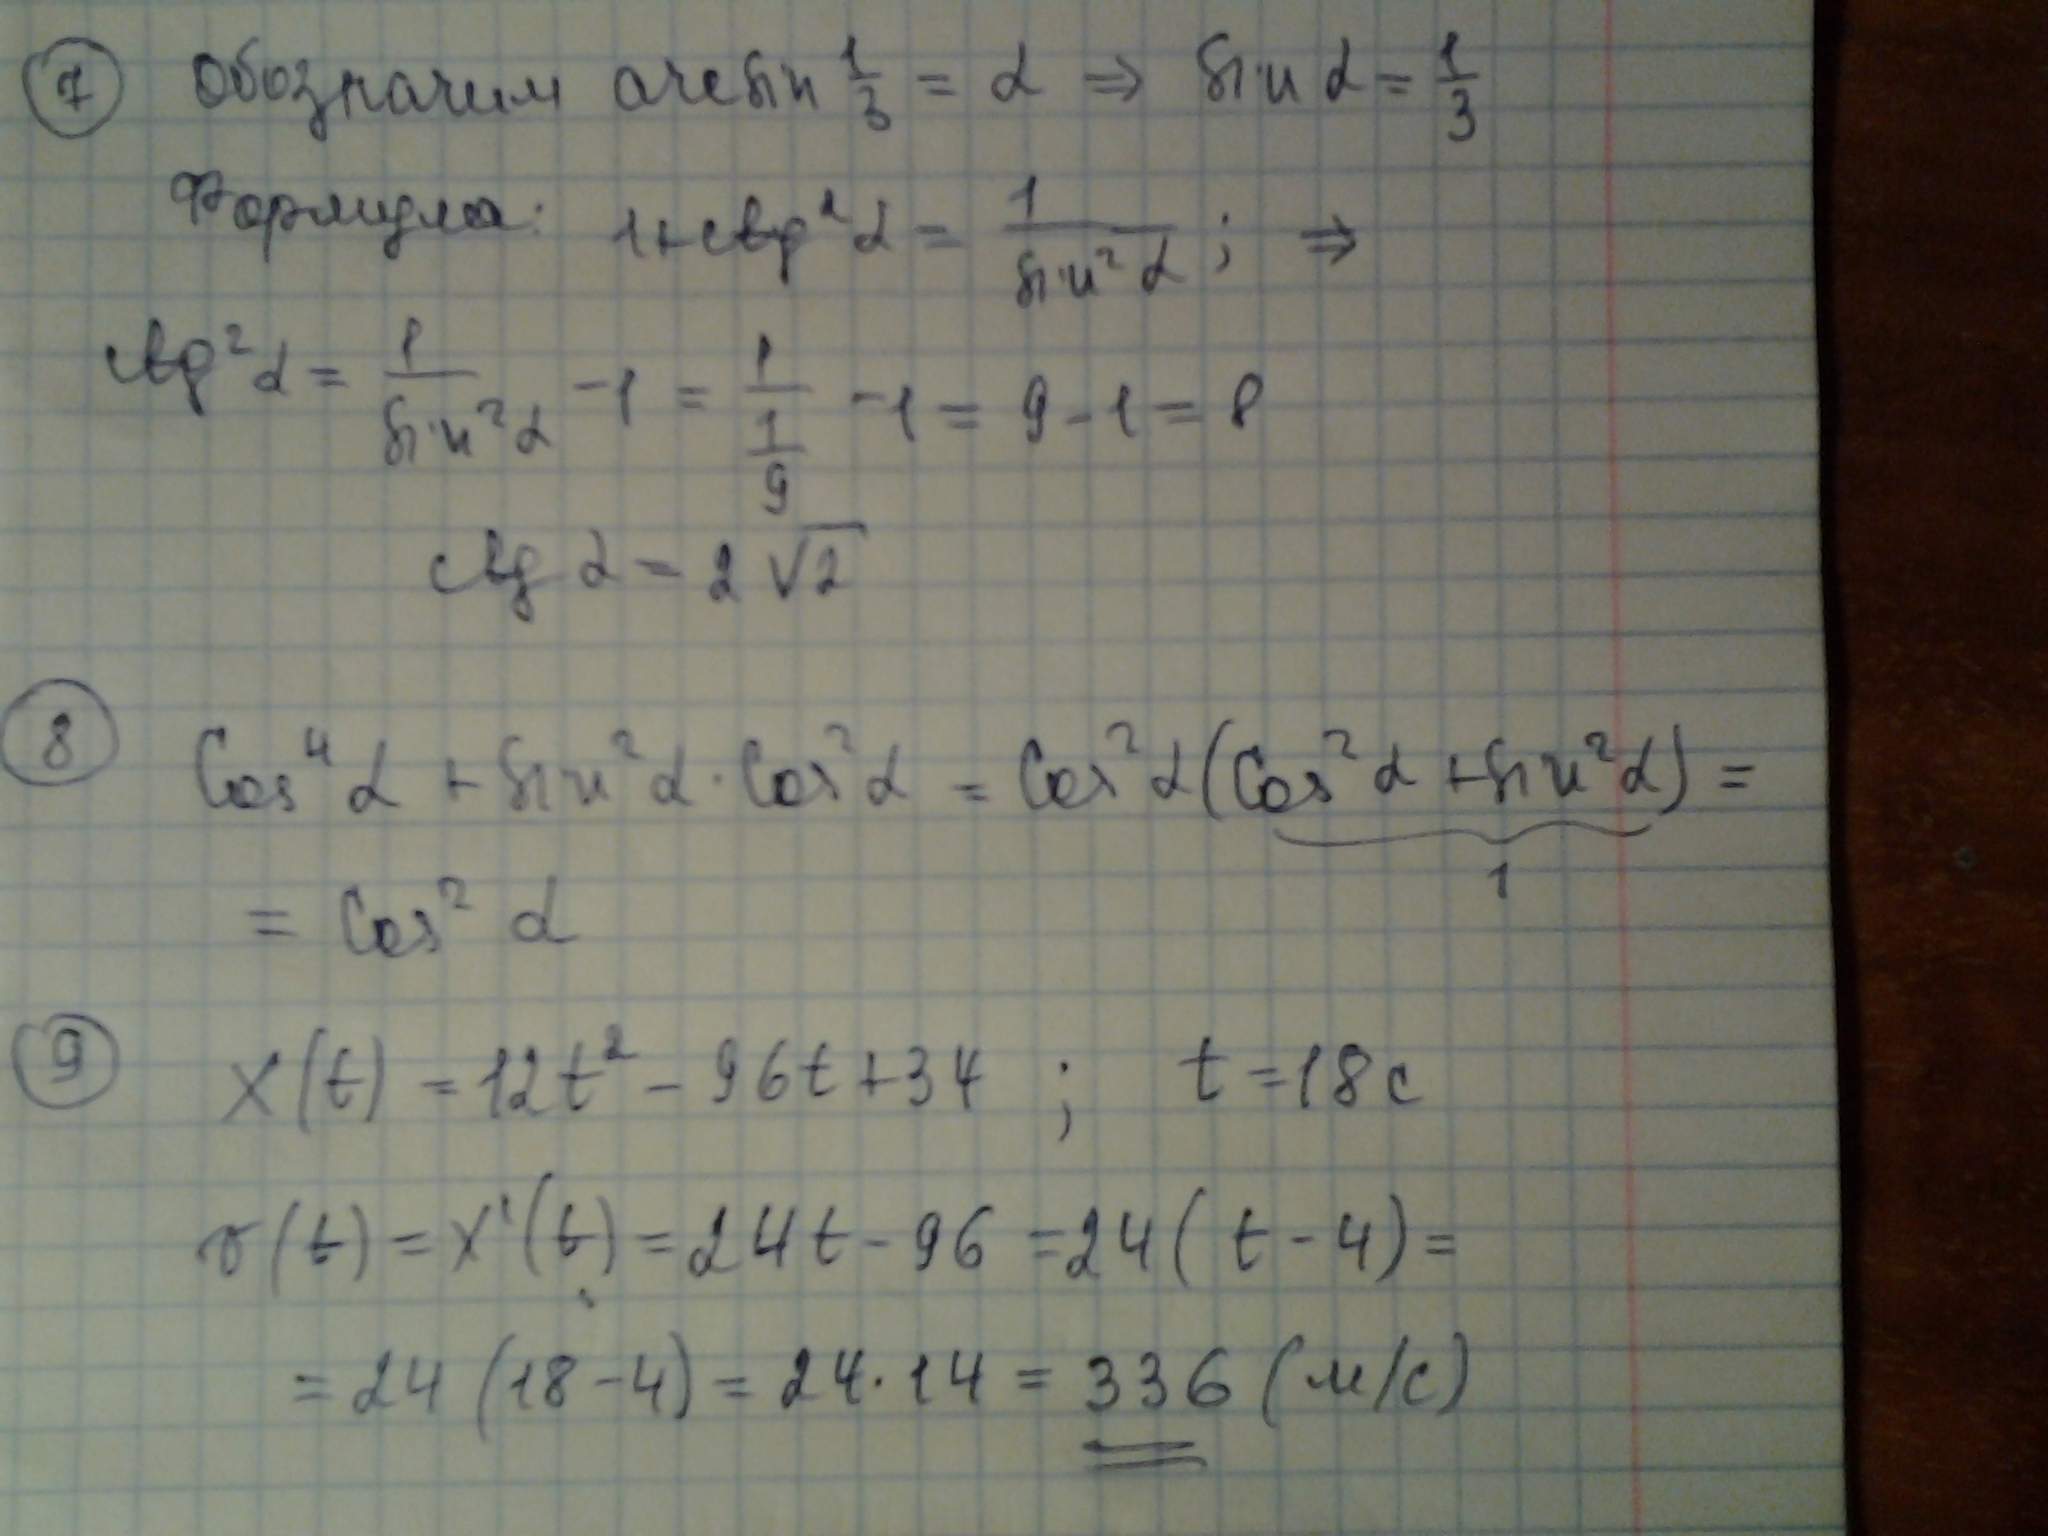 7 Обозначим arcsin 1/3 = α ⇒ sin α = 1/3
Формула: 1+ctg²α = 1/sin²α ; ⇒
ctg²α = 1/sin²α −1 = 1/(1/9) −1 = 9−1 = 8
ctg α = 2√2
8 Cos⁴α + sin²α·Cos²α = Cos²α(Cos²α + sin²α) =
1
= Cos² α
9 X(t) = 12t² − 96t + 34 ; t = 18 с
v(t) = X'(t) = 24t − 96 = 24(t − 4) =
= 24 (18 − 4) = 24·14 = 336 (м/с)